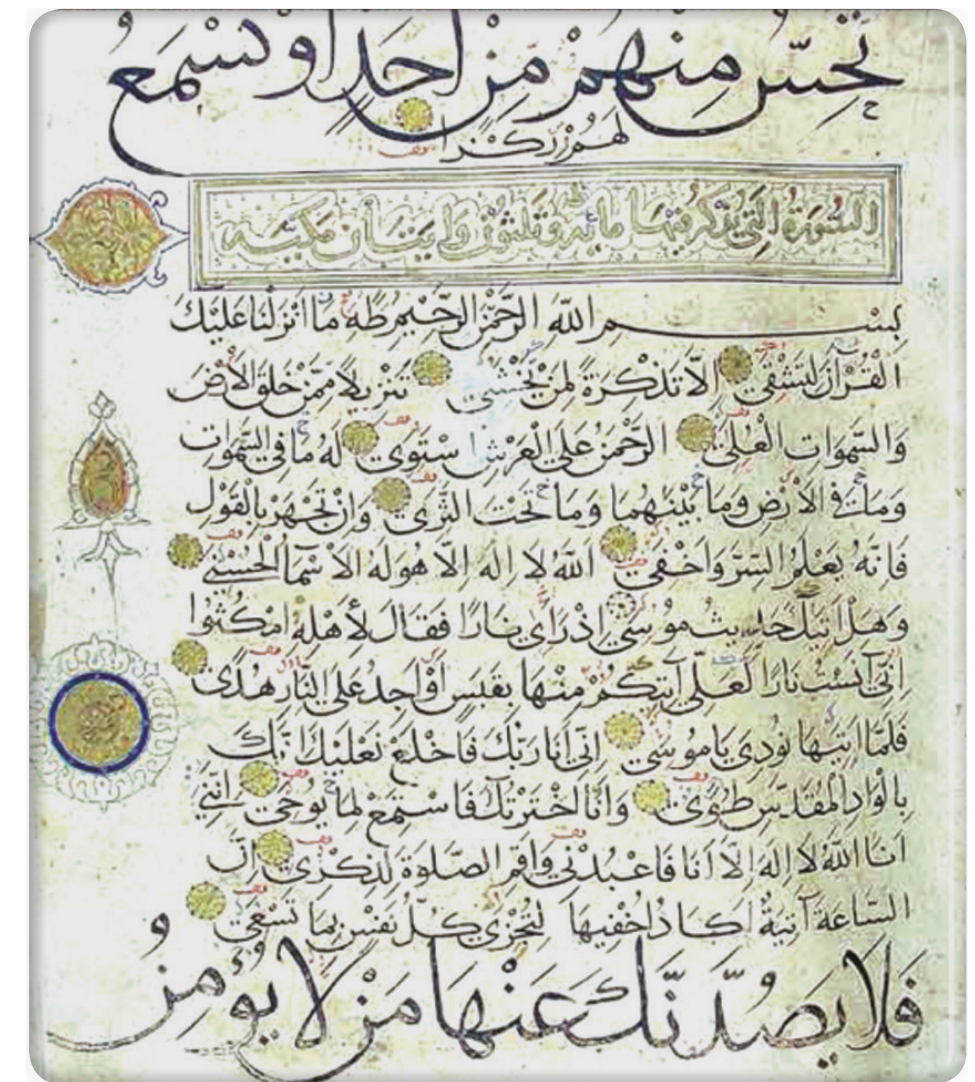 تُحِسُّ مِنْهُمْ مِنْ اَحَدٍ اَوْ تَسْمَعُ
لَهُمْ رِكْزًا
السُّورَةُ الَّتِي يُذْكَرُ فِيهَا طه مائة وثلثون وايتان مكية
بِسْمِ اللّٰهِ الرَّحْمٰنِ الرَّحِيمِ طه مَا اَنْزَلْنَا عَلَيْكَ
الْقُرْآنَ لِتَشْقَى اِلَّا تَذْكِرَةً لِمَنْ يَخْشَى تَنْزِيلًا مِمَّنْ خَلَقَ الْاَرْضَ
وَالسَّمٰوَاتِ الْعُلَى الرَّحْمٰنُ عَلَى الْعَرْشِ اسْتَوَى لَهُ مَا فِي السَّمٰوَاتِ
وَمَا فِي الْاَرْضِ وَمَا بَيْنَهُمَا وَمَا تَحْتَ الثَّرَى وَاِنْ تَجْهَرْ بِالْقَوْلِ
فَاِنَّهُ يَعْلَمُ السِّرَّ وَاَخْفَى اَللّٰهُ لَا اِلٰهَ اِلَّا هُوَ لَهُ الْاَسْمَآءُ الْحُسْنَى
وَهَلْ اَتٰيكَ حَدِيثُ مُوسَى اِذْ رَاَى نَارًا فَقَالَ لِأَهْلِهِ امْكُثُوا
اِنِّي آنَسْتُ نَارًا لَعَلِّي آتِيكُمْ مِنْهَا بِقَبَسٍ اَوْ اَجِدُ عَلَى النَّارِ هُدًى
فَلَمَّا اَتٰيهَا نُودِيَ يَا مُوسَى اِنِّي اَنَا رَبُّكَ فَاخْلَعْ نَعْلَيْكَ اِنَّكَ
بِالْوَادِ الْمُقَدَّسِ طُوًى وَاَنَا اخْتَرْتُكَ فَاسْتَمِعْ لِمَا يُوحَى اِنَّنِي
اَنَا اللّٰهُ لَا اِلٰهَ اِلَّا اَنَا فَاعْبُدْنِي وَاَقِمِ الصَّلٰوةَ لِذِكْرِي اِنَّ
السَّاعَةَ آتِيَةٌ اَكَادُ اُخْفِيهَا لِتُجْزَى كُلُّ نَفْسٍ بِمَا تَسْعَى
فَلَا يَصُدَّنَّكَ عَنْهَا مَنْ لَا يُؤْمِنُ